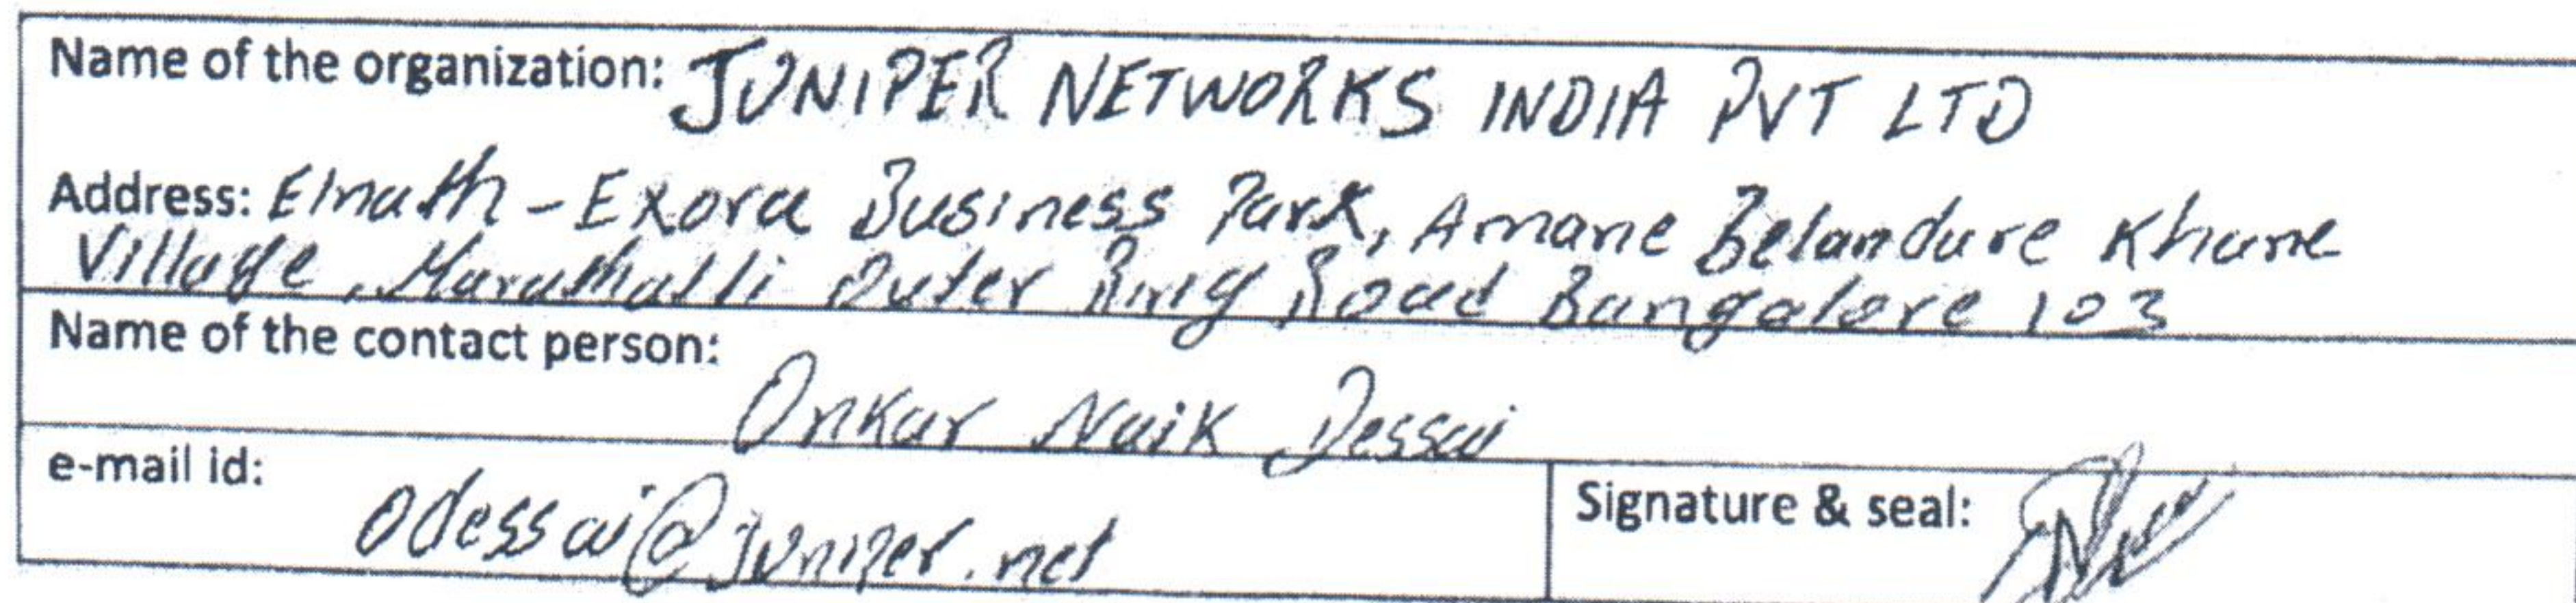 Name of the organization: JUNIPER NETWORKS INDIA PVT LTD
Address: Elnath - Exora Business Park, Amane Belandure Khane
Village, Marathalli Outer Ring Road Bangalore 103
Name of the contact person:
Onkar Naik Dessai
e-mail id:
odessai@juniper.net
Signature & seal: